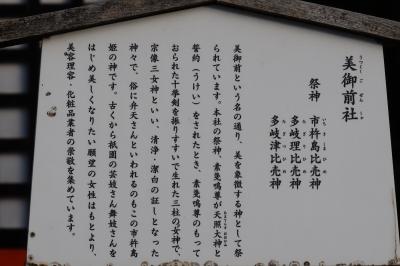 美御前社
うつくしごぜんしゃ
祭神 市杵島比売神
いちきしまひめ
多岐理比売神
たぎりひめ
多岐津比売神
たぎつひめ
美御前という名の通り、美を象徴する神として祭
られています。本社の祭神、素戔嗚尊が天照大神と
あまてらすおおみかみ
誓約(うけい)をされたとき、素戔嗚尊のもって
おられた十拳剣を振りすすいで生れた三柱の女神で、
宗像三女神といい、清浄・潔白の証しとなった
神々で、俗に弁天さんといわれるのもこの市杵島
姫の神です。古くから祇園の芸妓さん舞妓さんを
はじめ美しくなりたい願望の女性はもとより、
美容理容・化粧品業者の崇敬を集めています。